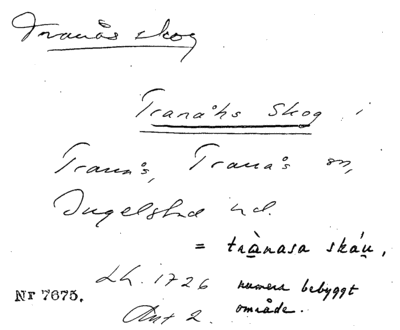 Tranås skog
Tranåhs Skog i
Tranås, Tranås sn,
Ingelstad hd.
= trànasa skáu,
Lh. 1726 numera bebyggt
Nr 7675. Akt 2. område.